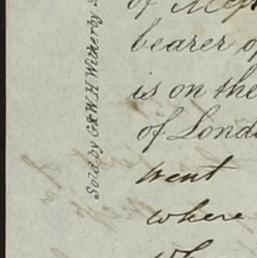 of
bearer of
is on the
of Lond
went
where
Sold by G & W H Witherby